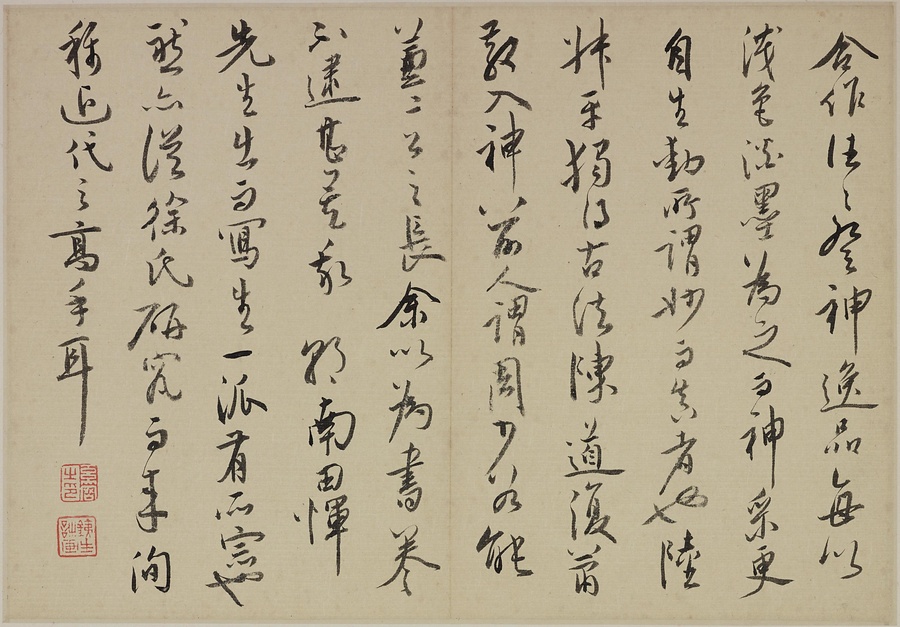 合作往々登神逸品每以
浅色淡墨為之而神采更
自生動所謂妙而真者也陸
叔平獨得古法陳道復蕭
散入神前人謂周少谷能
兼二公之長余以為書卷
不逮甚矣我 朝南田惲
先生出而寫生一派有所宗也
然亦從徐氏研究而来洵
稱近代之高手耳